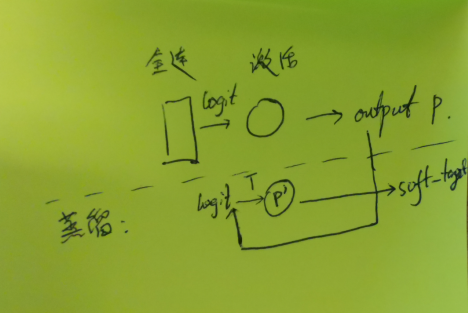 全连 激活
logit
output p.
蒸馏:
logit T p' soft-target